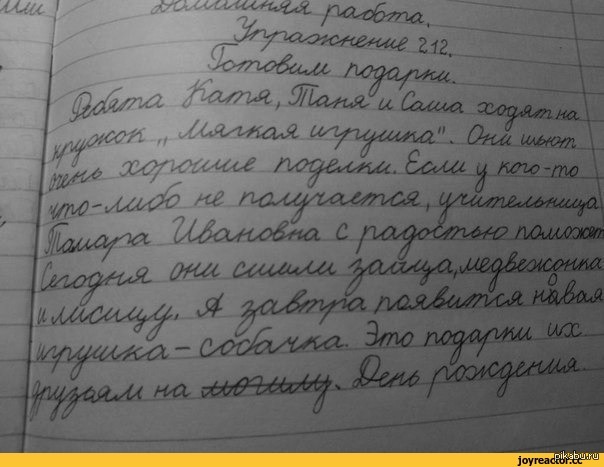 Домашняя работа.
Упражнение 212.
Готовим подарки.
Ребята Катя, Таня и Саша ходят на
кружок „Мягкая игрушка". Они шьют
очень хорошие поделки. Если у кого-то
что-либо не получается, учительница
Тамара Ивановна с радостью поможет
Сегодня они сшили зайца, медвежонка
и лисицу. А завтра появится новая
игрушка – собачка. Это подарки их
друзьям на могилу. День рождения.
joyreactor.cc
pikabu.ru